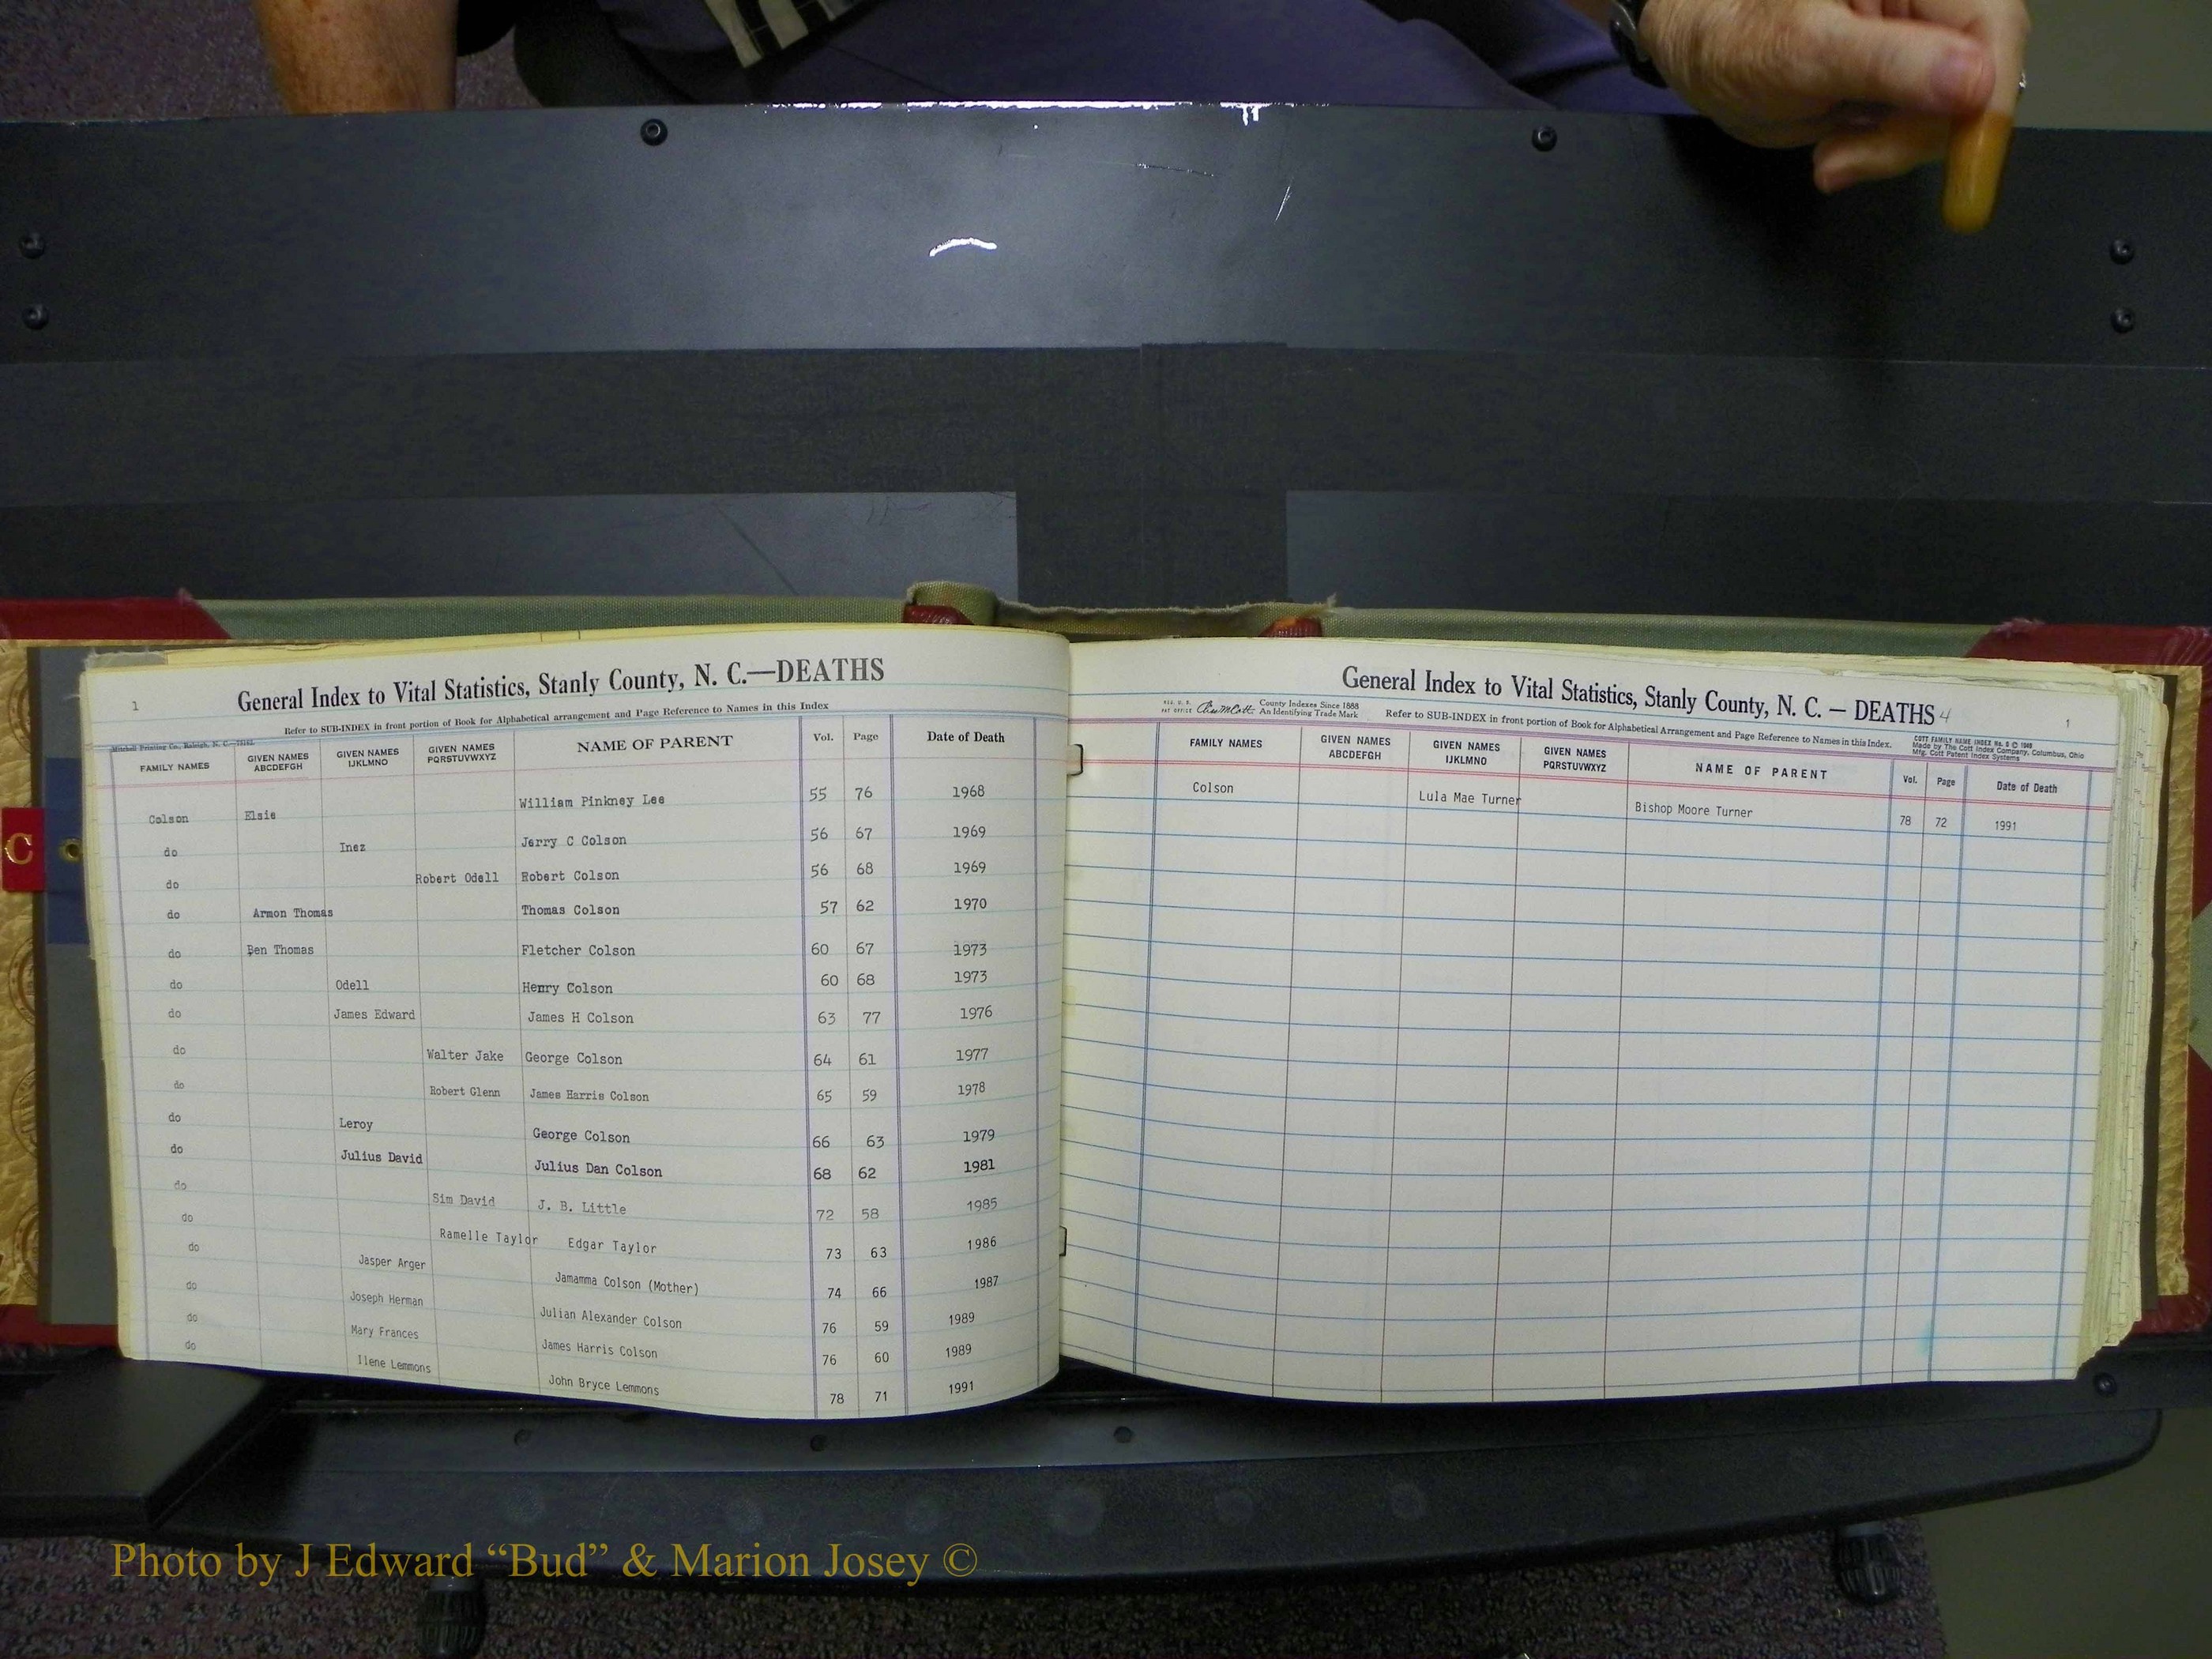 1
General Index to Vital Statistics, Stanly County, N. C.—DEATHS
Refer to SUB-INDEX in front portion of Book for Alphabetical arrangement and Page Reference to Names in this Index
Mitchell Printing Co., Raleigh, N. C.
FAMILY NAMES GIVEN NAMES ABCDEFGH GIVEN NAMES IJKLMNO GIVEN NAMES PQRSTUVWXYZ NAME OF PARENT Vol. Page Date of Death
Colson Elsie William Pinkney Lee 55 76 1968
do Inez Jerry C Colson 56 67 1969
do Robert Odell Robert Colson 56 68 1969
do Armon Thomas Thomas Colson 57 62 1970
do Ben Thomas Fletcher Colson 60 67 1973
do Odell Henry Colson 60 68 1973
do James Edward James H Colson 63 77 1976
do Walter Jake George Colson 64 61 1977
do Robert Glenn James Harris Colson 65 59 1978
do Leroy George Colson 66 63 1979
do Julius David Julius Dan Colson 68 62 1981
do Sim David J. B. Little 72 58 1985
do Ramelle Taylor Edgar Taylor 73 63 1986
do Jasper Arger Jamamma Colson (Mother) 74 66 1987
do Joseph Herman Julian Alexander Colson 76 59 1989
do Mary Frances James Harris Colson 76 60 1989
do Ilene Lemmons John Bryce Lemmons 78 71 1991
General Index to Vital Statistics, Stanly County, N. C. — DEATHS 4
1
REG. U. S. PAT OFFICE County Indexes Since 1888 An Identifying Trade Mark
Refer to SUB-INDEX in front portion of Book for Alphabetical Arrangement and Page Reference to Names in this Index.
COTT FAMILY NAME INDEX No. 5 © 1949
Made by The Cott Index Company, Columbus, Ohio
Mfg. Cott Patent Index Systems
FAMILY NAMES GIVEN NAMES ABCDEFGH GIVEN NAMES IJKLMNO GIVEN NAMES PQRSTUVWXYZ NAME OF PARENT Vol. Page Date of Death
Colson Lula Mae Turner Bishop Moore Turner 78 72 1991
C
Photo by J Edward “Bud” & Marion Josey ©